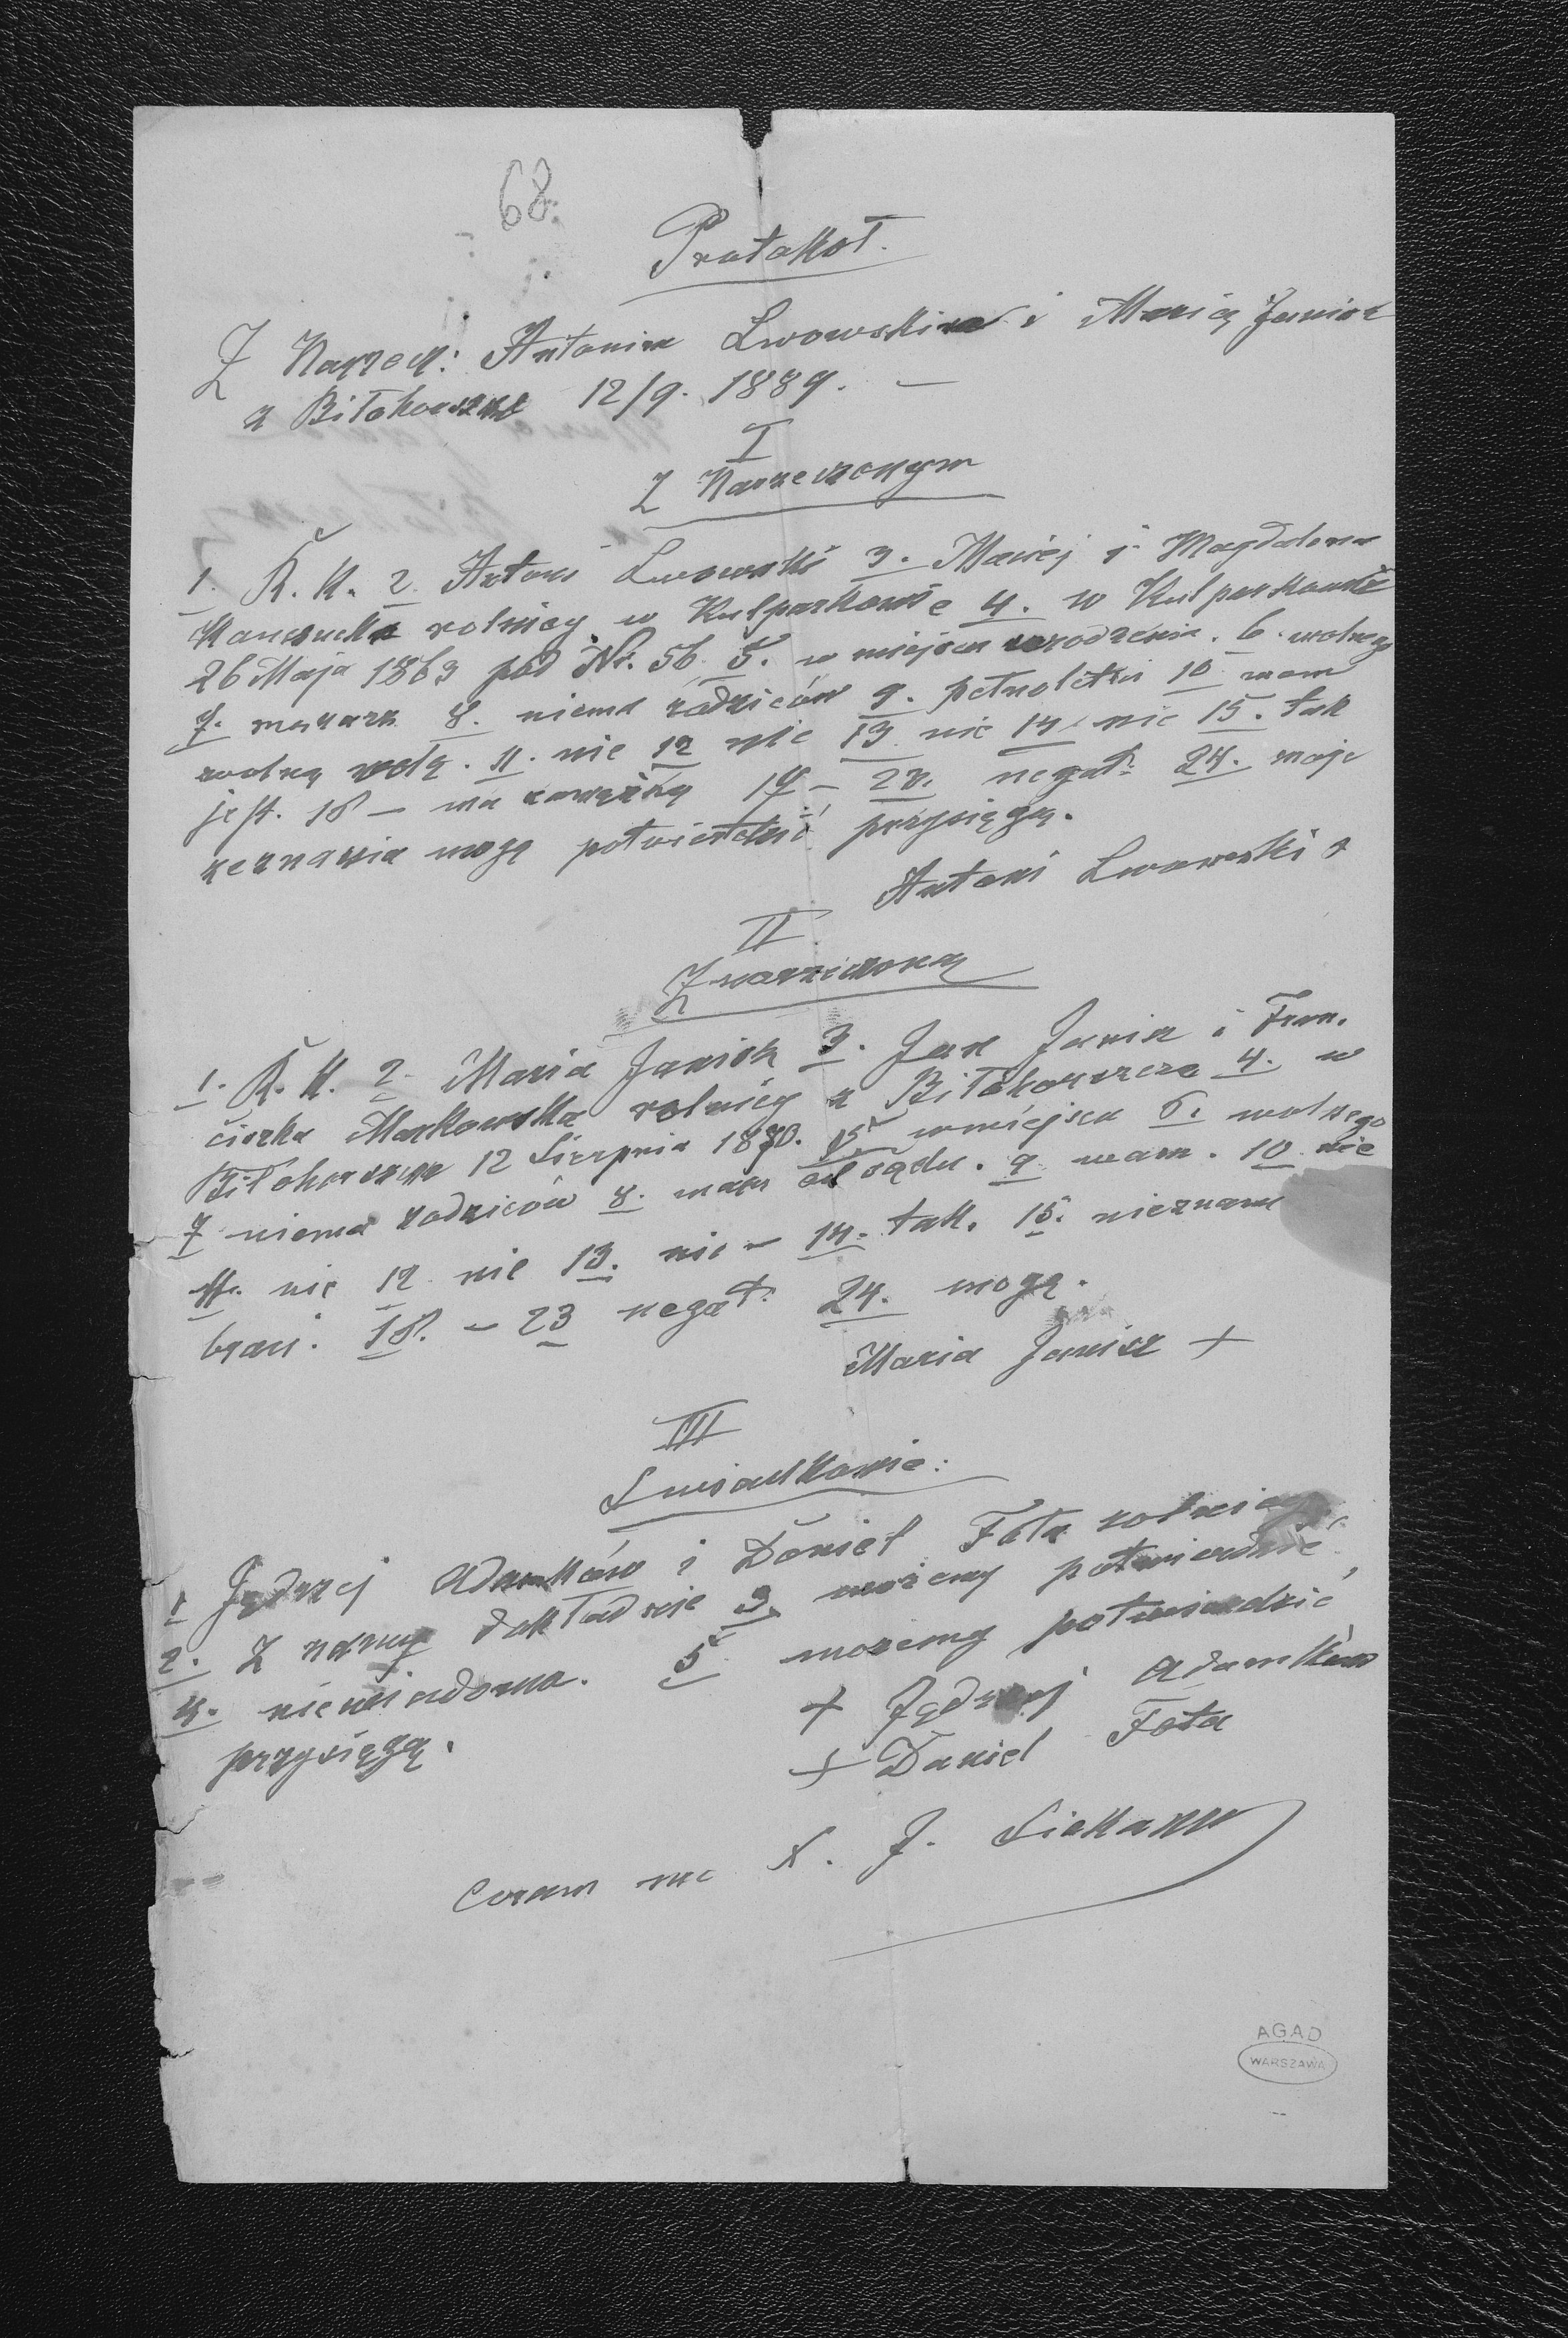 68.
Protokoł.
Z Narzecz: Antonim Lwowskim i Marią Janisz
z Biłohorszcz 12/9. 1889. —
I
Z Narzeczonym
1. R. K. 2. Antoni Lwowski 3. Maciej i Magdalena
rolnicy w Kulparkowie 4. w Kulparkowie
26 Maja 1863 pod Nr. 56. 5. w miejscu urodzenia. 6. wolnego
7. 8. niema rodziców 9. pełnoletni 10 mam
wolną wolę. 11. nie 12 nie 13 nie 14 nie 15. tak
jest. 18 — na 19 — 23. negat: 24. moje
zeznania mogę potwierdzić przysięgą.
Antoni Lwowski +
II
Z narzeczoną
1. R. K. 2. Maria Janisz 3. Jan Janisz i Fran.
ciszka Markowska rolnicy z Biłohorszcza 4. w
Biłohorszczu 12 Sierpnia 1870. 5 w miejscu 6. wolnego
7 niema rodziców 8. mam od sądu. 9. mam. 10 nie
11. nie 12 nie 13. nie — 14. tak. 15. nieznam
18. — 23 negat: 24. mogę.
Maria Janisz +
III
Świadkowie:
1 Jędrzej Adamków i Daniel Fota rolnicy,
2. Znamy dokładnie 3. możemy potwierdzić,
4. niewiadomo. 5 możemy potwierdzić
przysięgą.
+ Jędrzej Adamków
+ Daniel Fota
coram me X. J.
AGAD
WARSZAWA